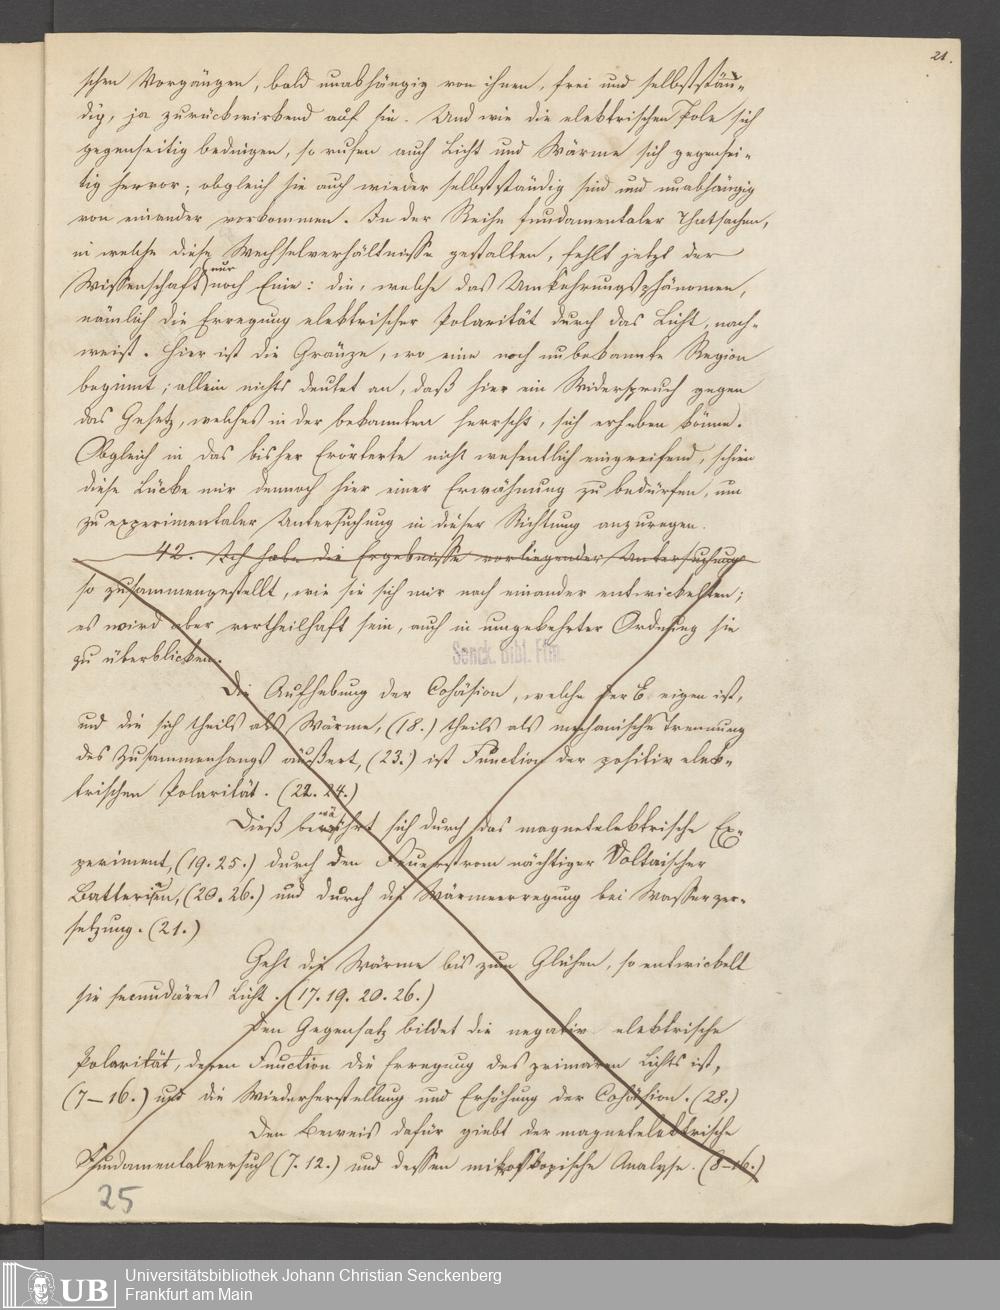 21.
schen Vorgängen, bald unabhängig von ihnen, frei und selbststän-
dig, ja zurückwirkend auf sie. Und wie die elektrischen Pole sich
gegenseitig bedingen, so rufen auch Licht und Wärme sich gegensei-
tig hervor; obgleich sie auch wieder selbstständig sind und unabhängig
von einander vorkommen. In der Reihe fundamentaler Thatsachen,
in welche diese Wechselverhältnisse gestalten, fehlt jetzt der
Wissenschaft nur noch Eine: die, welche das Umkehrungsphänomen,
nämlich die Erregung elektrischer Polarität durch das Licht, nach-
weist. Hier ist die Gränze, wo eine noch unbekannte Region
beginnt; allein nichts deutet an, daß hier ein Widerspruch gegen
das Gesetz, welches in der bekannten herrscht, sich erheben könne.
Obgleich in das bisher Erörterte nicht wesentlich eingreifend, schien
diese Lücke mir dennoch hier einer Erwähnung zu bedürfen, um
zu experimentaler Untersuchung in dieser Richtung anzuregen.
42. Ich habe die Ergebnisse vorliegender Untersuchung
so zusammengestellt, wie sie sich mir nach einander entwickelten;
es wird aber vortheilhaft sein, auch in umgekehrter Ordnung sie
zu überblicken.
Senck. Bibl. Ffm.
Die Aufhebung der Cohäsion, welche der E eigen ist,
und die sich theils als Wärme, (18.) theils als mechanische Trennung
des Zusammenhangs äußert, (23.) ist Function der positiv elek-
trischen Polarität. (22. 24.)
Dieß bewährt sich durch das magnetelektrische Ex-
periment, (19. 25.) durch den Feuerstrom mächtiger Voltaischer
Batterien, (20. 26.) und durch die Wärmeerregung bei Wasserzer-
setzung. (21.)
Geht die Wärme bis zum Glühen, so entwickelt
sie secundäres Licht. (17. 19. 20. 26.)
Den Gegensatz bildet die negativ elektrische
Polarität, deren Function die Erregung des primären Lichts ist,
(7–16.) und die Wiederherstellung und Erhöhung der Cohäsion. (28.)
Den Beweis dafür giebt der magnetelektrische
Fundamentalversuch (7. 12.) und dessen mikroskopische Analyse. (8–16.)
25
UB
Universitätsbibliothek Johann Christian Senckenberg
Frankfurt am Main